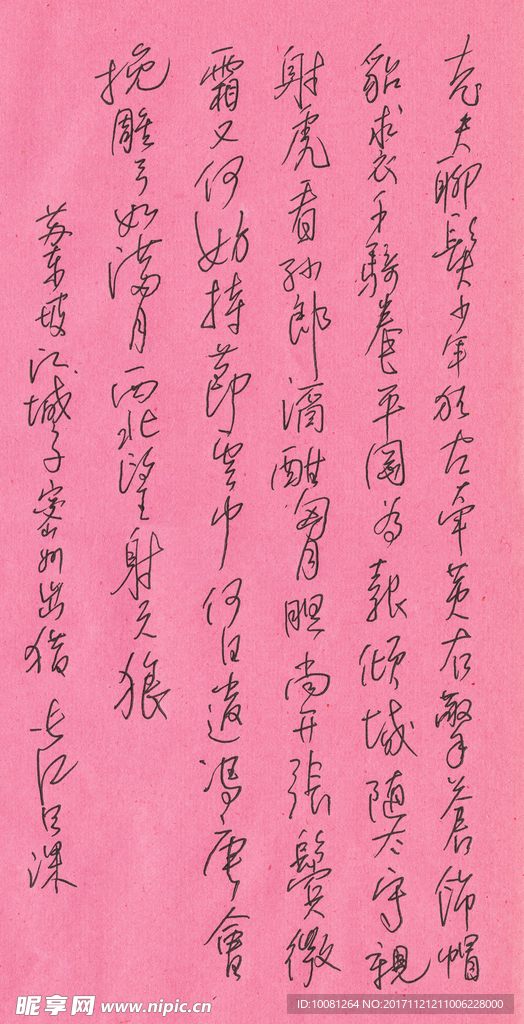 老夫聊髮少年狂左牵黄右擎蒼锦帽
貂裘千騎卷平岡为報倾城随太守親
射虎看孙郎酒酣胸胆尚开張鬓微
霜又何妨持節雲中何日遣馮唐會
挽雕弓如满月西北望射天狼
苏东坡江城子密州出猎 长江日深
昵享网 www.nipic.cn
ID:10081264 NO:20171121211006228000